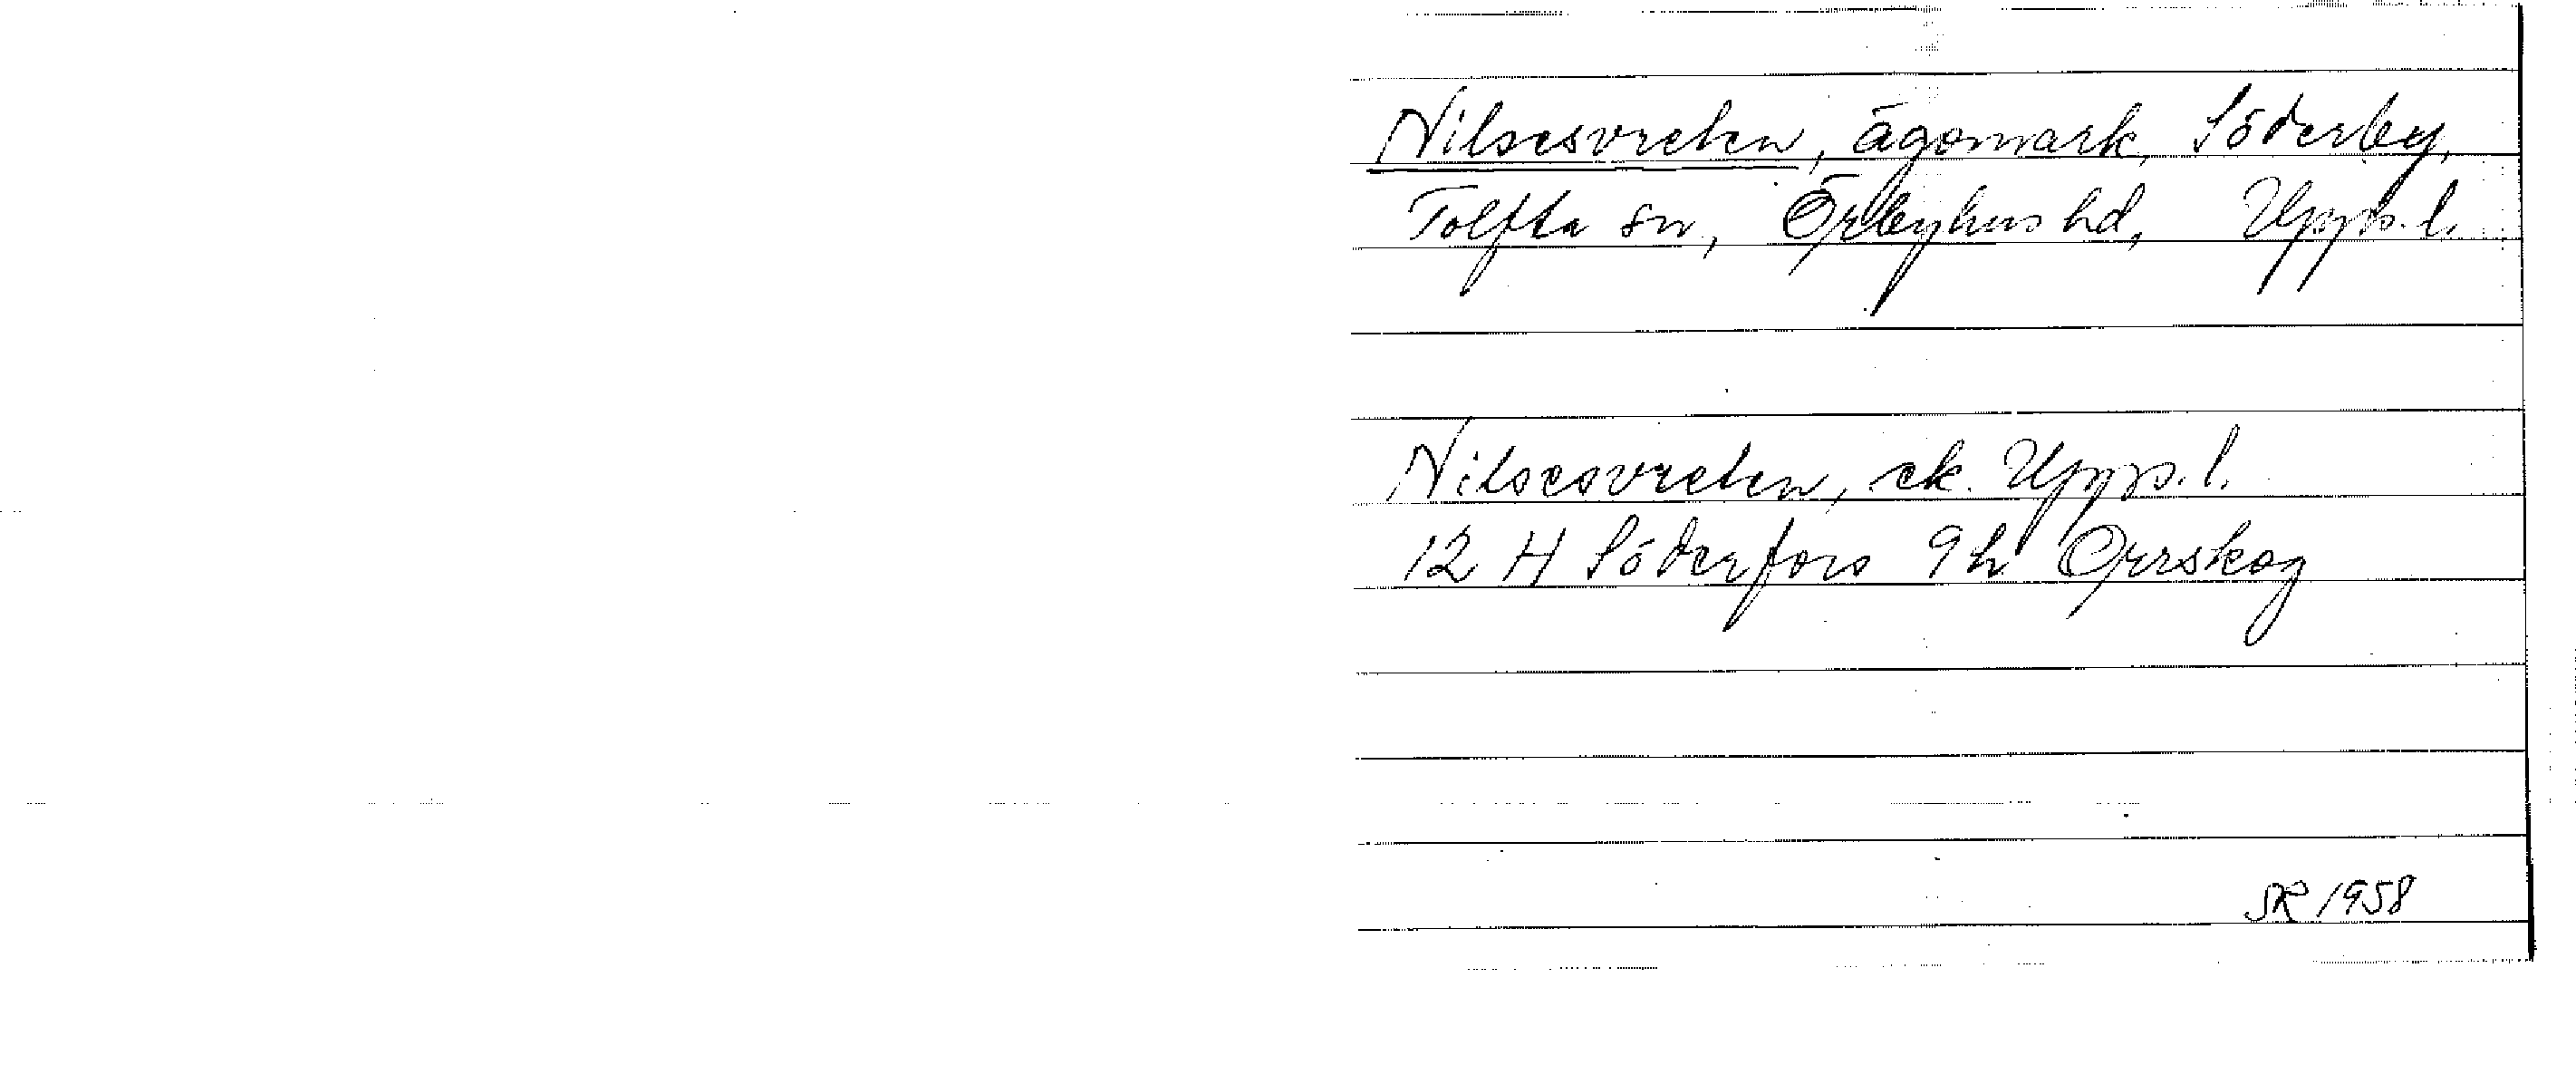 Nilsesvreten, ägomark, Söderby,
Tolfta sn, Örbyhus hd, Upps.l.
Nilsesvreten, ek. Upps.l.
12 H Söderfors 9h Orrskog
SR 1958